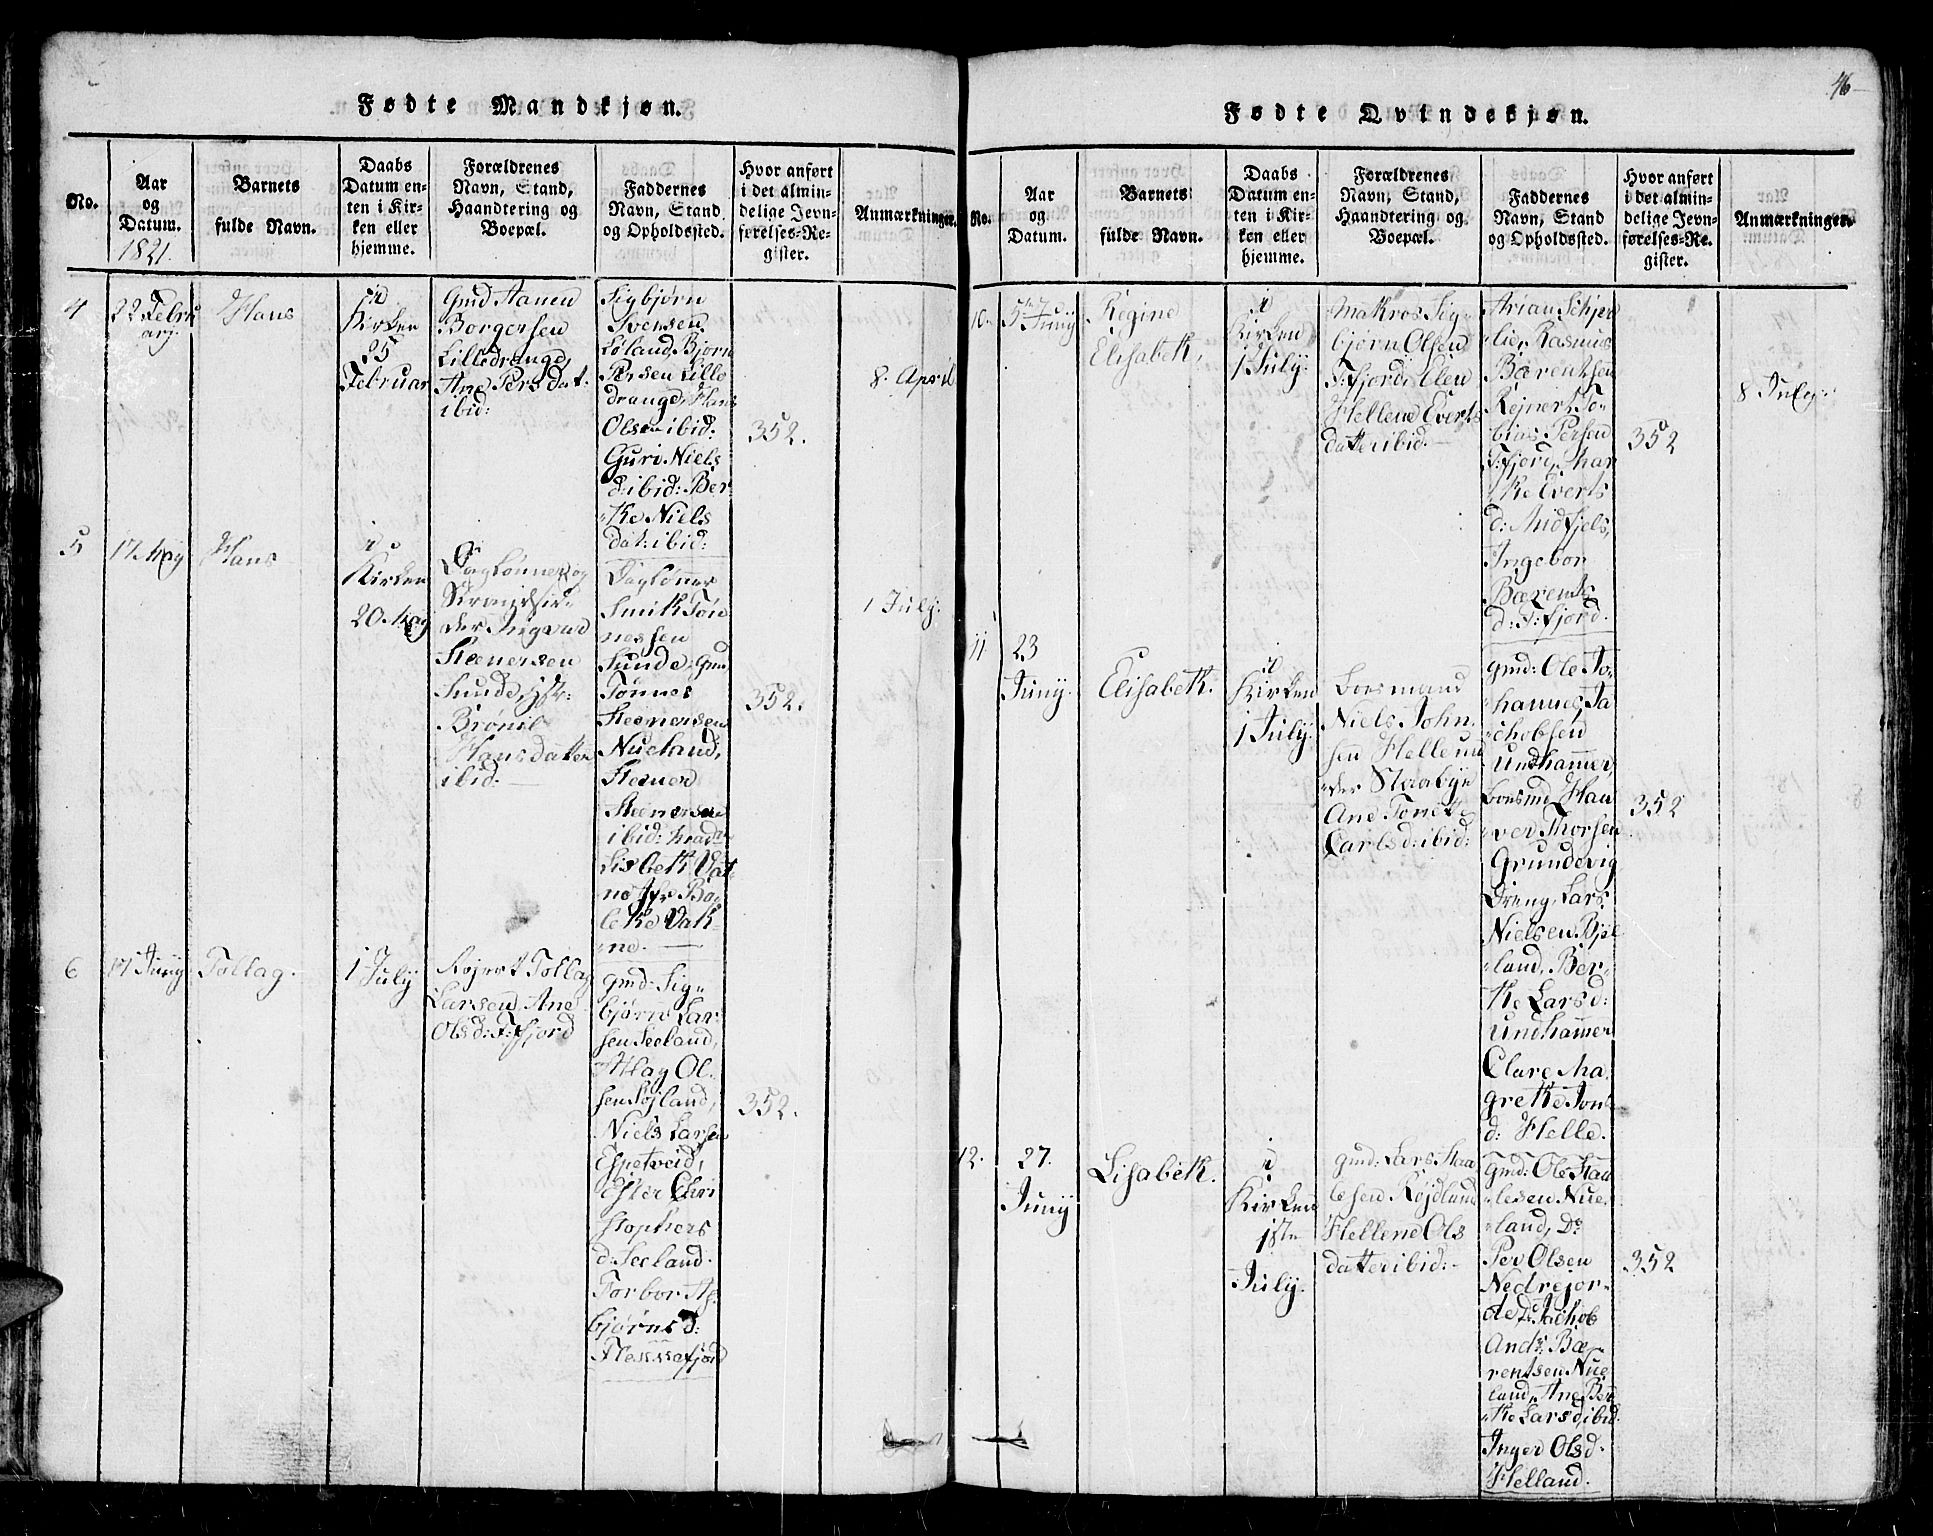 46
Fødte Mandkjøn.
No.
Aar
og
Datum.
1821.
Barnets
fulde Navn.
Daabs
Datum en-
ten i Kir-
ken eller
hjemme.
Forældrenes
Navn, Stand,
Haandtering og
Boepæl.
Faddernes
Navn, Stand
og Opholdssted.
Hvor anført
i det almin-
delige Jevn-
førelses-Re-
gister.
Anmærkninger.
4
22 Febru
arj.
Hans
i
Kirken
25
Februar
Gmd Aanen
Borgersen
Lilledrange,
Ane Pers dat.
ibid:
Sigbjørn
Svensen
Løland, Bjørn
Persen Lille
drange, Hans
Olsen ibid:
Guri Niels
d: ibid: Ber
the Niels
dat: ibid:
352.
8. April
5
17 May
Hans
i
Kirken
20 May
Daglønner og
Strandsid-
der Ingvald
Steenersen
Sunde,
Brønil
Hansdatter
ibid:
Dagløner
Smith Tøn
nessen
Sunde, Gmd
Tønnes
Steenersen
Nueland,
Steener
Steenersen
ibid:
Lisbeth Vat
ne
the Vath-
ne.
352.
1 July.
6
17 Juny
Tollag.
1 July
Rejert Tollag
Larsen, Ane
Olsd: F:fjord
gmd: Sig-
bjørn Lar-
sen Seeland,
Atlag Ol-
sen Søjland,
Niels Larsen
Espetveid,
Ester Chri
stophers
d: Seeland.
Torbor As-
bjørnsd:
Flesssefjord
352.
Fødte Qvindekjøn.
No.
Aar
og
Datum.
Barnets
fulde Navn.
Daabs
Datum en-
ten i Kir-
ken eller
hjemme.
Forældrenes
Navn, Stand,
Haandtering og
Boepæl.
Faddernes
Navn, Stand
og Opholdssted.
Hvor anført
i det almin-
delige Jevn-
førelses-Re-
gister.
Anmærkninger.
10
5te Juny
Regine
Elisabeth,
i
Kirken
1 July.
Makros Sig-
bjørn Olsen
F:fjord, Elen
Hellene Everts
datter ibid:
Arian Schjer
lie, Rasmus
Bærentsen
Rejnert, To-
bias Persen
F:fjord, Mar
the Everts
d: Andfjels,
Ingebor
Bærents
d: F:fjord.
352
8 July.
11
23
Juny.
Elisabeth.
i
Kirken
1 July.
Loesmand
Niels John-
sen Helle un
der Staabye
Ane Tonet
Carlsd: ibid:
gmd: Ole Jo-
hannes Ja
chobsen
Undhamer,
Loesmd Han
ver Thorsen
Grundevig
Dreng, Lars
Nielsen Bjel
land, Ber-
the Larsd:
Undhamer
Clare Ma
grethe Jons
d: Helle.
352
12.
27.
Juny
Lisabeth.
i
Kirken
1ste
July.
gmd: Lars Staa
lesen Røjdland
Hellene Ols
datter ibid:
Gmd: Ole Staa
lesen Nue-
land, Do
Per Olsen
Nedrejor-
det, Jachob
Andr: Bæ-
rentsen Nue
land, Ane Ber
the Larsd, ibid.
Inger Olsd.
Helland.
352